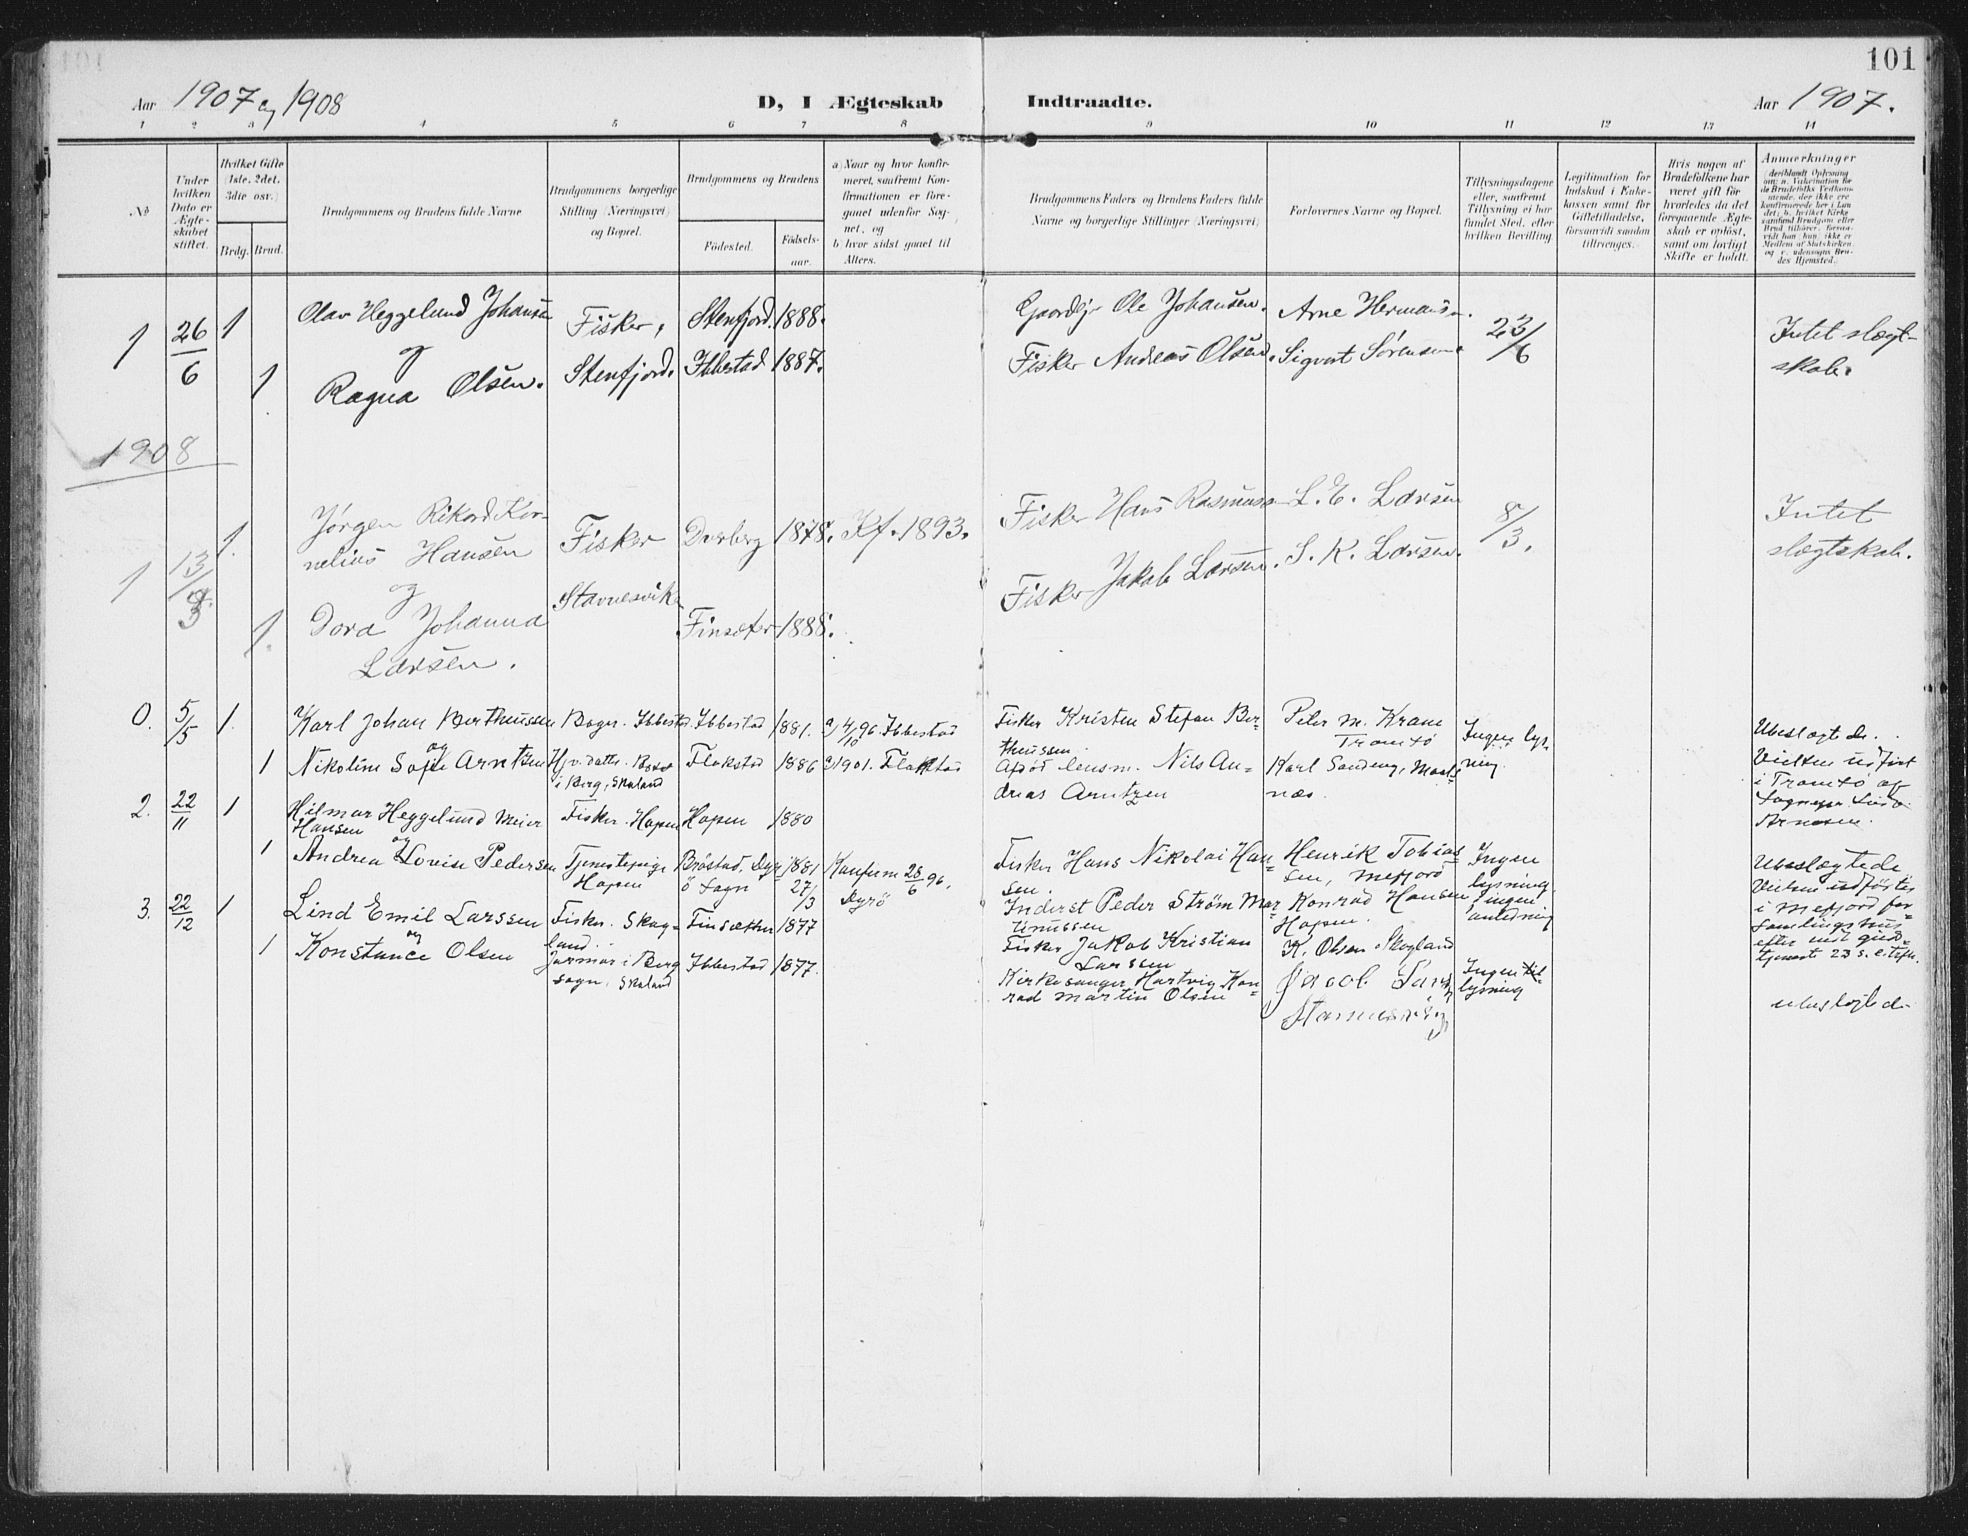 101
Aar 1907 og 1908
D, I Ægteskab Indtraadte.
Aar 1907.
1 2 3 4 5 6 7 8 9 10 11 12 13 14
No
Under hvilken Dato er Ægteskabet stiftet.
Hvilket Gifte (1ste. 2det. 3die osv.)
Brdg. Brud.
Brudgommens og Brudens fulde Navne
Brudgommens borgerlige Stilling (Næringsvei) og Bopæl.
Brudgommens og Brudens
Fødested.
Fødsels-aar.
a) Naar og hvor konfirmeret, saafremt Konfirmationen er foregaaet udenfor Sognet, og
b) hvor sidst gaaet til Alters.
Brudgommens Faders og Brudens Faders fulde Navne og borgerlige Stillinger (Næringsvei)
Forlovernes Navne og Bopæl.
Tillysningsdagene eller, saafremt Tillysning ei har fundet Sted, efter hvilken Bevilling.
Legitimation for Indskud i Enkekassen samt for Giftetilladelse, forsaavidt saadan tiltrænges.
Hvis nogen af Brudefolkene har været gift før hvorledes da det foregaaende Ægteskab er opløst, samt om lovligt Skifte er holdt.
Anmærkninger
1 26/6 1 Olav Heggelund Johansen Fisker, Stenfjord. 1888. Gaardbr Ole Johansen. Arne Hermansen. 23/6 Intet slægt-
og
1 Ragna Olsen. Stenfjord. Ibbestad 1887. Fisker Andreas Olsen. Sigvart Sørensen. skab.
1908
1 13/3 1. Jørgen Rikard Kor- Fisker 1878. Kf. 1893. Fisker Hans Rasmussen L. E. Larsen 8/3. Intet
nelius Hansen Fisker Jakob Larsen. S. K. Larsen. slægtskab.
og Stavnesvik
1. Dora Johanna Finsæter 1888.
Larsen.
0. 5/5 1. Karl Johan Bertheussen Bager. Ibbestad. Ibbestad 1881. a) 4/10 96. Ibbestad Fisker Kristen Stefan Ber- Peter M. Krane Ingen lys- Ubeslægtede.
og theussen. Tromsö ning Vielsen udført
1 Nikoline Sofie Arntsen Flakstad 1886 a) 1901. Flakstad Afdöd lensm. Nils An- Karl Sandeng, i Tromsö af
i Berg, Skaland dreas Arntzen næs.
2. 22/11 1 Hilmar Heggelund Meier Fisker. Hopen Hopen 1880
Hansen Arnesen.
og
1 Andrea Lovise Pedersen Tjenestepige Bröstad, Dyr- 1881 Konfirm 28/6 96. Fisker Hans Nikolai Han- Henrik Tobias- Ingen Ubeslægtede
Hopen ö Sogn 27/3 Dyrö sen. sen, Mefjord lysning.
Inderst Peder Strøm Mar- Konrad Hansen Ingen i Mefjord for-
tinussen Hopen. anledning samlingshus
3. 22/12 1 Lind Emil Larssen Fisker. Skog- Finsæther 1877 Fisker Jakob Kristian K. Olsen Skogland
og land. Larssen
1 Konstance Olsen i Berg Ibbestad 1877. Kirkesanger Hartvig Kon- Ingen
sogn, Skaland rad Martin Olsen lysning